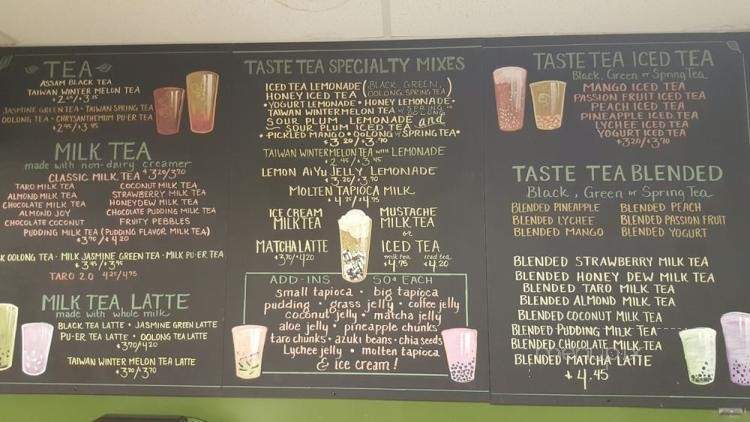 TEA
ASSAM BLACK TEA
TAIWAN WINTER MELON TEA
JASMINE GREEN TEA • TAIWAN SPRING TEA
OOLONG TEA • CHRYSANTHEMUM PU-ER TEA
MILK TEA
made with non-dairy creamer
CLASSIC MILK TEA $3.20/3.70
TARO MILK TEA COCONUT MILK TEA
ALMOND MILK TEA STRAWBERRY MILK TEA
CHOCOLATE MILK TEA HONEYDEW MILK TEA
ALMOND JOY CHOCOLATE PUDDING MILK TEA
CHOCOLATE COCONUT FRUITY PEBBLES
PUDDING MILK TEA (PUDDING FLAVOR MILK TEA)
$3.70/4.20
OOLONG TEA • MILK JASMINE GREEN TEA • MILK PU-ER TEA
TARO 2.0 4.25/4.75
MILK TEA, LATTE
made with whole milk
BLACK TEA LATTE • JASMINE GREEN LATTE
PU-ER TEA LATTE • OOLONG TEA LATTE
$3.70/4.20
TAIWAN WINTER MELON TEA LATTE
TASTE TEA SPECIALTY MIXES
ICED TEA LEMONADE (BLACK, GREEN,
HONEY ICED TEA OOLONG, SPRING TEA)
• YOGURT LEMONADE • HONEY LEMONADE •
TAIWAN WINTER MELON TEA
SOUR PLUM LEMONADE and
SOUR PLUM ICED TEA
• PICKLED MANGO • OOLONG or SPRING TEA •
$3.20/3.70
TAIWAN WINTERMELON TEA with LEMONADE
$2.95/3.45
LEMON AiYu JELLY LEMONADE
$3.20/3.70
MOLTEN TAPIOCA MILK
$4.25/4.75
ICE CREAM
MILK TEA
MATCHA LATTE
$3.70/4.20
MUSTACHE
MILK TEA
or
ICED TEA
milk tea iced tea
$4.75 $4.20
ADD-INS 50¢ EACH
small tapioca • big tapioca
pudding • grass jelly • coffee jelly
coconut jelly • matcha jelly
aloe jelly • pineapple chunks
taro chunks • azuki beans • chia seeds
Lychee jelly • molten tapioca
& ice cream!
TASTE TEA ICED TEA
Black, Green or Spring Tea
MANGO ICED TEA
PASSION FRUIT ICED TEA
PEACH ICED TEA
PINEAPPLE ICED TEA
LYCHEE ICED TEA
YOGURT ICED TEA
$3.20/3.70
TASTE TEA BLENDED
Black, Green or Spring Tea
BLENDED PINEAPPLE BLENDED PEACH
BLENDED LYCHEE BLENDED PASSION FRUIT
BLENDED MANGO BLENDED YOGURT
BLENDED STRAWBERRY MILK TEA
BLENDED HONEY DEW MILK TEA
BLENDED TARO MILK TEA
BLENDED ALMOND MILK TEA
BLENDED COCONUT MILK TEA
BLENDED PUDDING MILK TEA
BLENDED CHOCOLATE MILK TEA
BLENDED MATCHA LATTE
$4.45